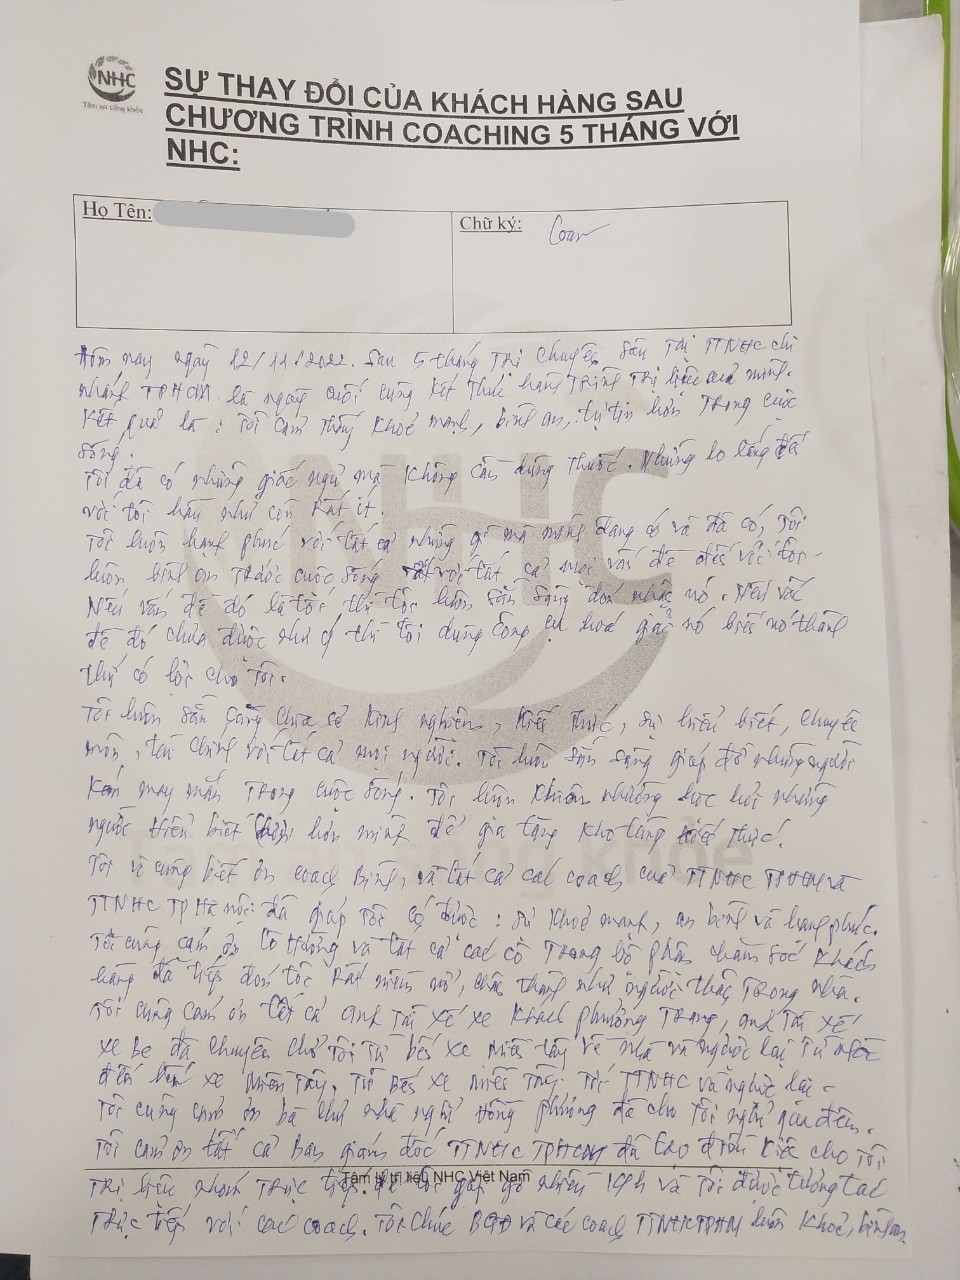 NHC
Tâm an sống khỏe
SỰ THAY ĐỔI CỦA KHÁCH HÀNG SAU
CHƯƠNG TRÌNH COACHING 5 THÁNG VỚI
NHC:
Họ Tên:
Chữ ký: Loan
Hôm nay ngày 12/11/2022. Sau 5 tháng trị chuyên sâu tại TTNHC chi
nhánh TPHCM là ngày cuối cùng kết thúc hành trình trị liệu của mình.
Kết quả là: Tôi cảm thấy khoẻ mạnh, bình an, tự tin hơn trong cuộc
sống.
Tôi đã có những giấc ngủ mà không cần dùng thuốc. Những lo lắng đối
với tôi hầu như còn rất ít.
Tôi luôn hạnh phúc với tất cả những gì mà mình đang có và đã có, Tôi
luôn bình an trước cuộc sống với tất cả mọi vấn đề đến với tôi.
Nếu vấn đề đó là tốt thì tôi luôn sẵn sàng đón nhận nó. Nếu vấn
đề đó chưa được như ý thì tôi dùng công cụ hoá giải nó biến nó thành
thứ có lợi cho tôi.
Tôi luôn sẵn sàng chia sẻ kinh nghiệm, kiến thức, sự hiểu biết, chuyên
môn, của chúng với tất cả mọi người. Tôi luôn sẵn sàng giúp đỡ những người
kém may mắn trong cuộc sống. Tôi luôn khiêm nhường học hỏi những
người hiểu biết hơn mình để gia tăng kho tàng kiến thức.
Tôi vô cùng biết ơn coach Bình, và tất cả các coach của TTNHC TPHCM và
TTNHC TP Hà nội đã giúp tôi có được: sự khoẻ mạnh, an bình và hạnh phúc.
Tôi cũng cám ơn cô Hường và tất cả các cô trong bộ phận chăm sóc khách
hàng đã tiếp đón tôi rất niềm nở, chân thành như người thân trong nhà.
Tôi cũng cám ơn tất cả anh tài xế xe khách phương Trang, anh tài xế
xe Be đã chuyên chở tôi từ bến xe miền tây về nhà và ngược lại từ
đến bến xe Miền Tây. Từ bến xe miền Tây tới TTNHC và ngược lại.
Tôi cũng cám ơn bà chủ nhà nghỉ Hồng phượng đã cho tôi nghỉ qua đêm.
Tôi cám ơn tất cả Ban giám đốc TTNHC TPHCM đã tạo điều kiện cho tôi
Tâm lý trị liệu NHC Việt Nam
trị liệu nhóm trực tiếp để tôi gặp gỡ nhiều và tôi được tương tác
trực tiếp với các coach. Tôi chúc BGĐ và các coach TTNHC TPHCM luôn khoẻ, bình an